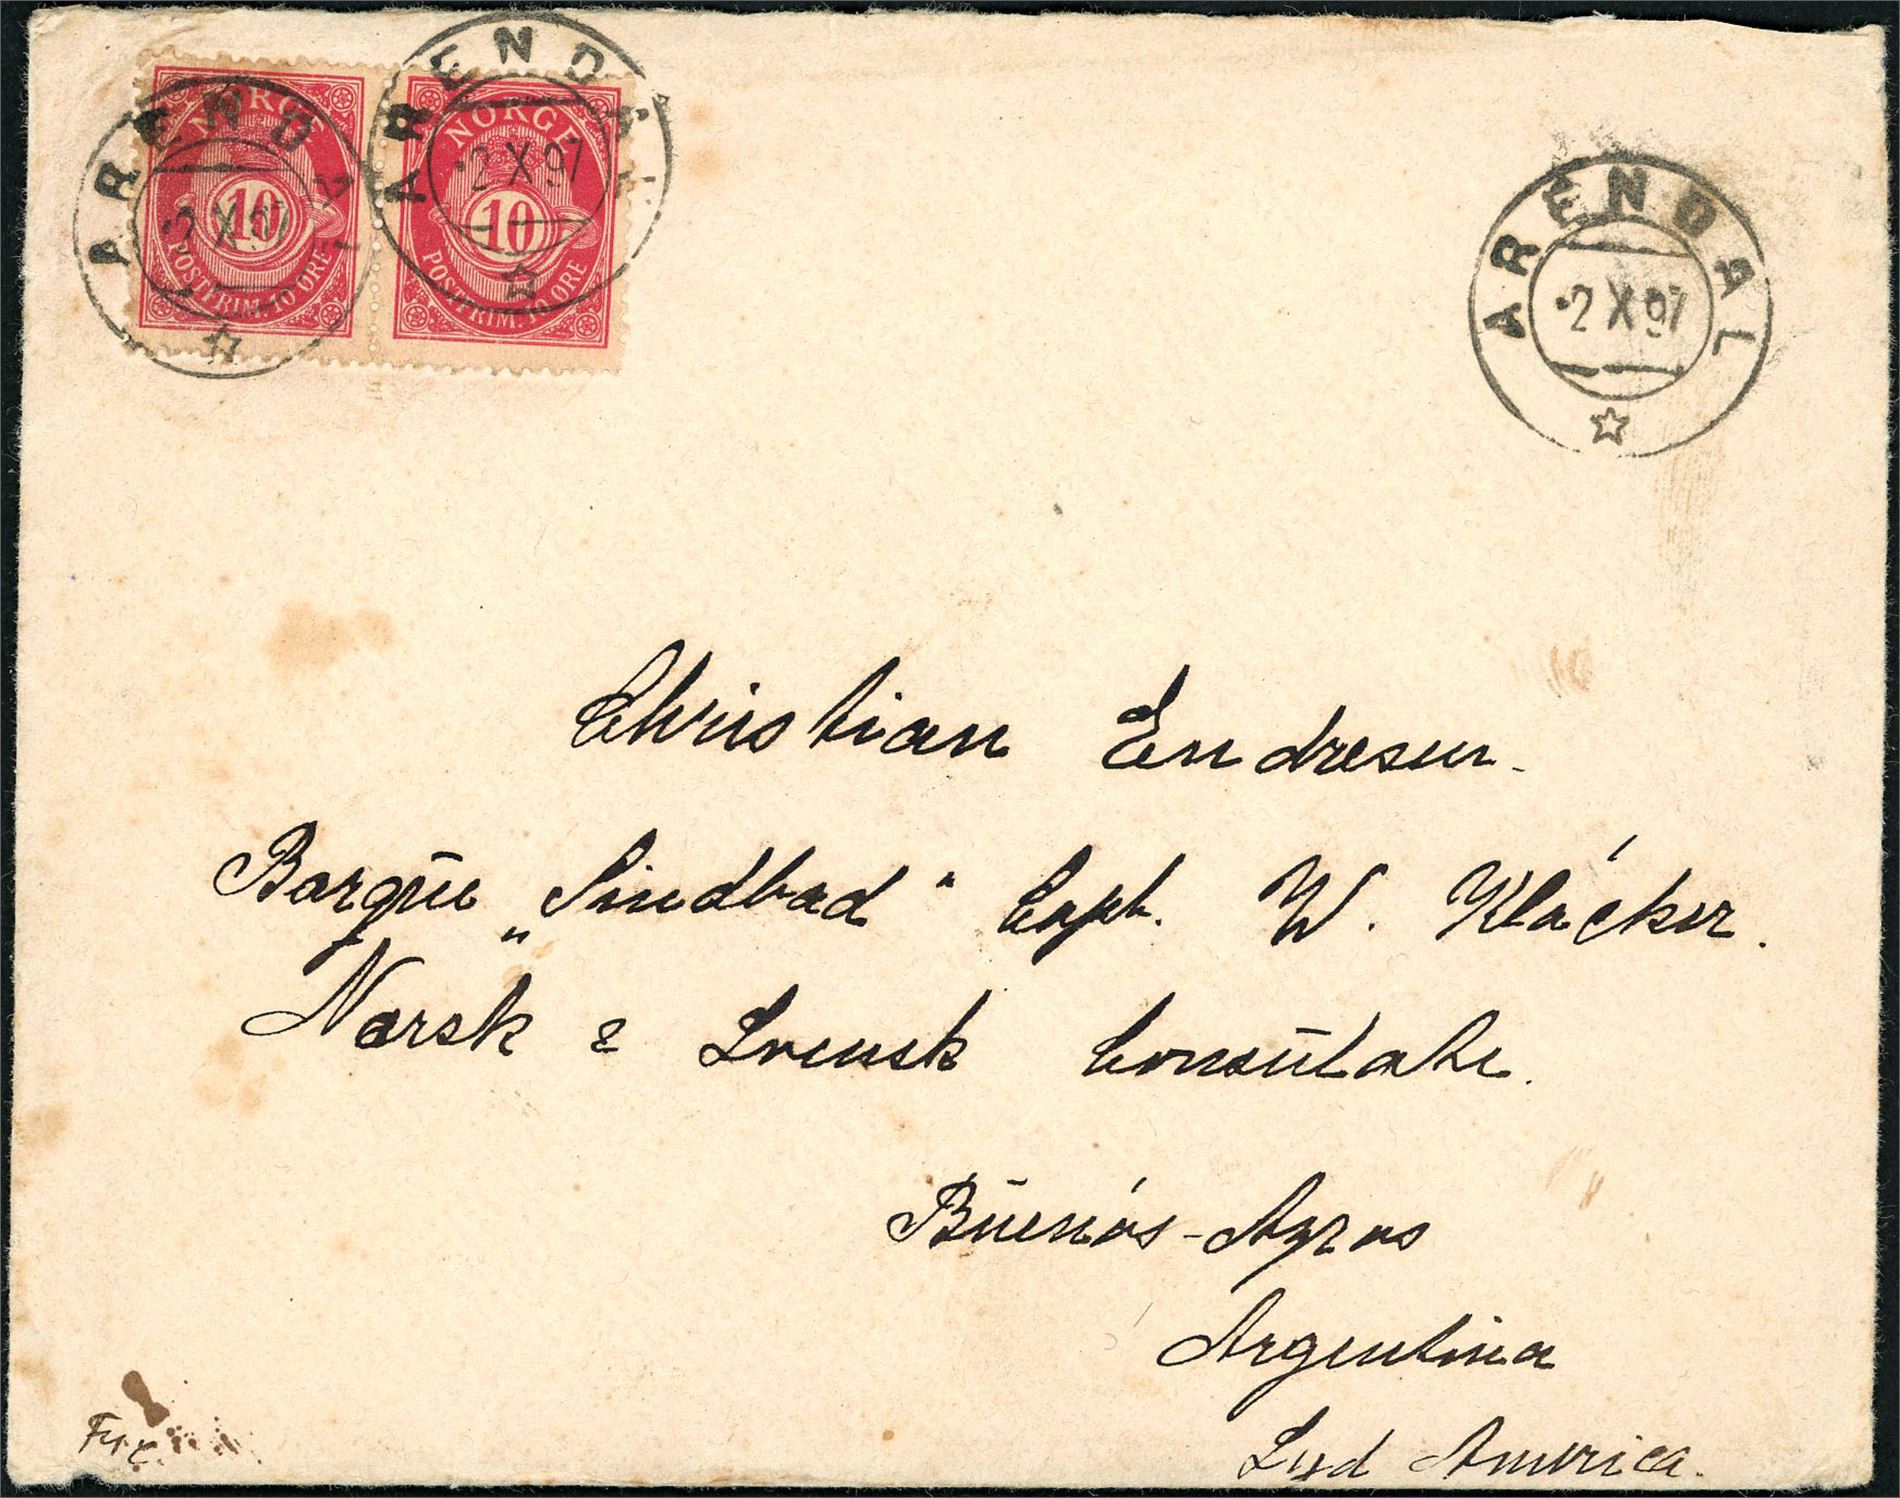 NORGE
10
POSTFRIM. 10 ØRE
NORGE
10
POSTFRIM. 10 ØRE
ARENDAL
2 X 97
ARENDAL
2 X 97
ARENDAL
2 X 97
Christian Endresen.
Barque „Sindbad" Capt. W. Klåcker.
Norsk & Svensk Consulate.
Buenós-Ayros
Argentina
Syd America.